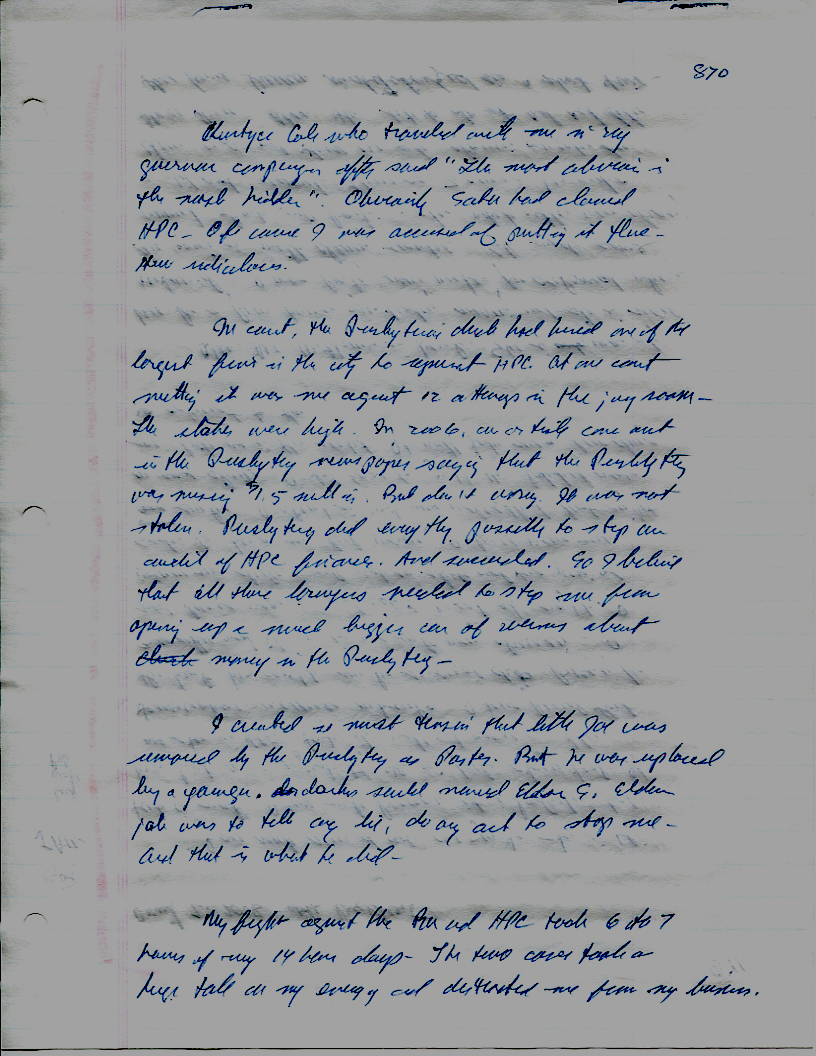 870
Cole who traveled with me in my
governor campaign often said "The most obvious is
the most hidden". Obviously had
HPC - Of course I was accused of putting it there -
How ridiculous.
In court, the Presbyterian church had hired one of the
largest firms in the city to represent HPC. At one court
meeting it was me against 12 attorneys in the jury room -
The stakes were high. In 2006, an article came out
in the Presbytery newspaper saying that the Presbytery
was missing $1.5 million. But don't worry. It was not
stolen. Presbytery did everything possible to stop an
audit of HPC finances. And succeeded. So I believe
that all those lawyers needed to stop me from
opening up a much bigger can of worms about
church money in the Presbytery -
I created so much that little Joe was
removed by the Presbytery as Pastor. But he was replaced
by a younger, named Elder G. Elder
job was to tell any lie, do any act to stop me -
And that is what he did -
My fight against the and HPC took 6 to 7
hours of my 14 hour days - The two cases took a
huge toll on my energy and distracted me from my business.